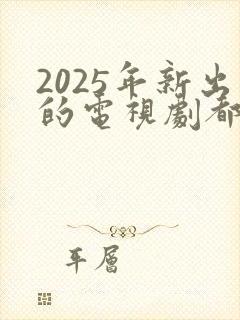 2025年新出
的電視劇都
年層